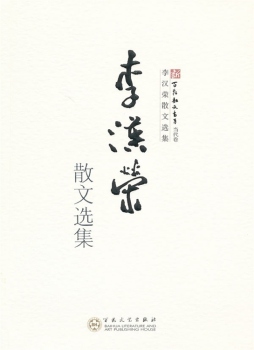 百花散文书系
当代卷
李汉荣散文选集
李漢榮
散文选集
百花文艺出版社
BAIHUA LITERATURE AND
ART PUBLISHING HOUSE